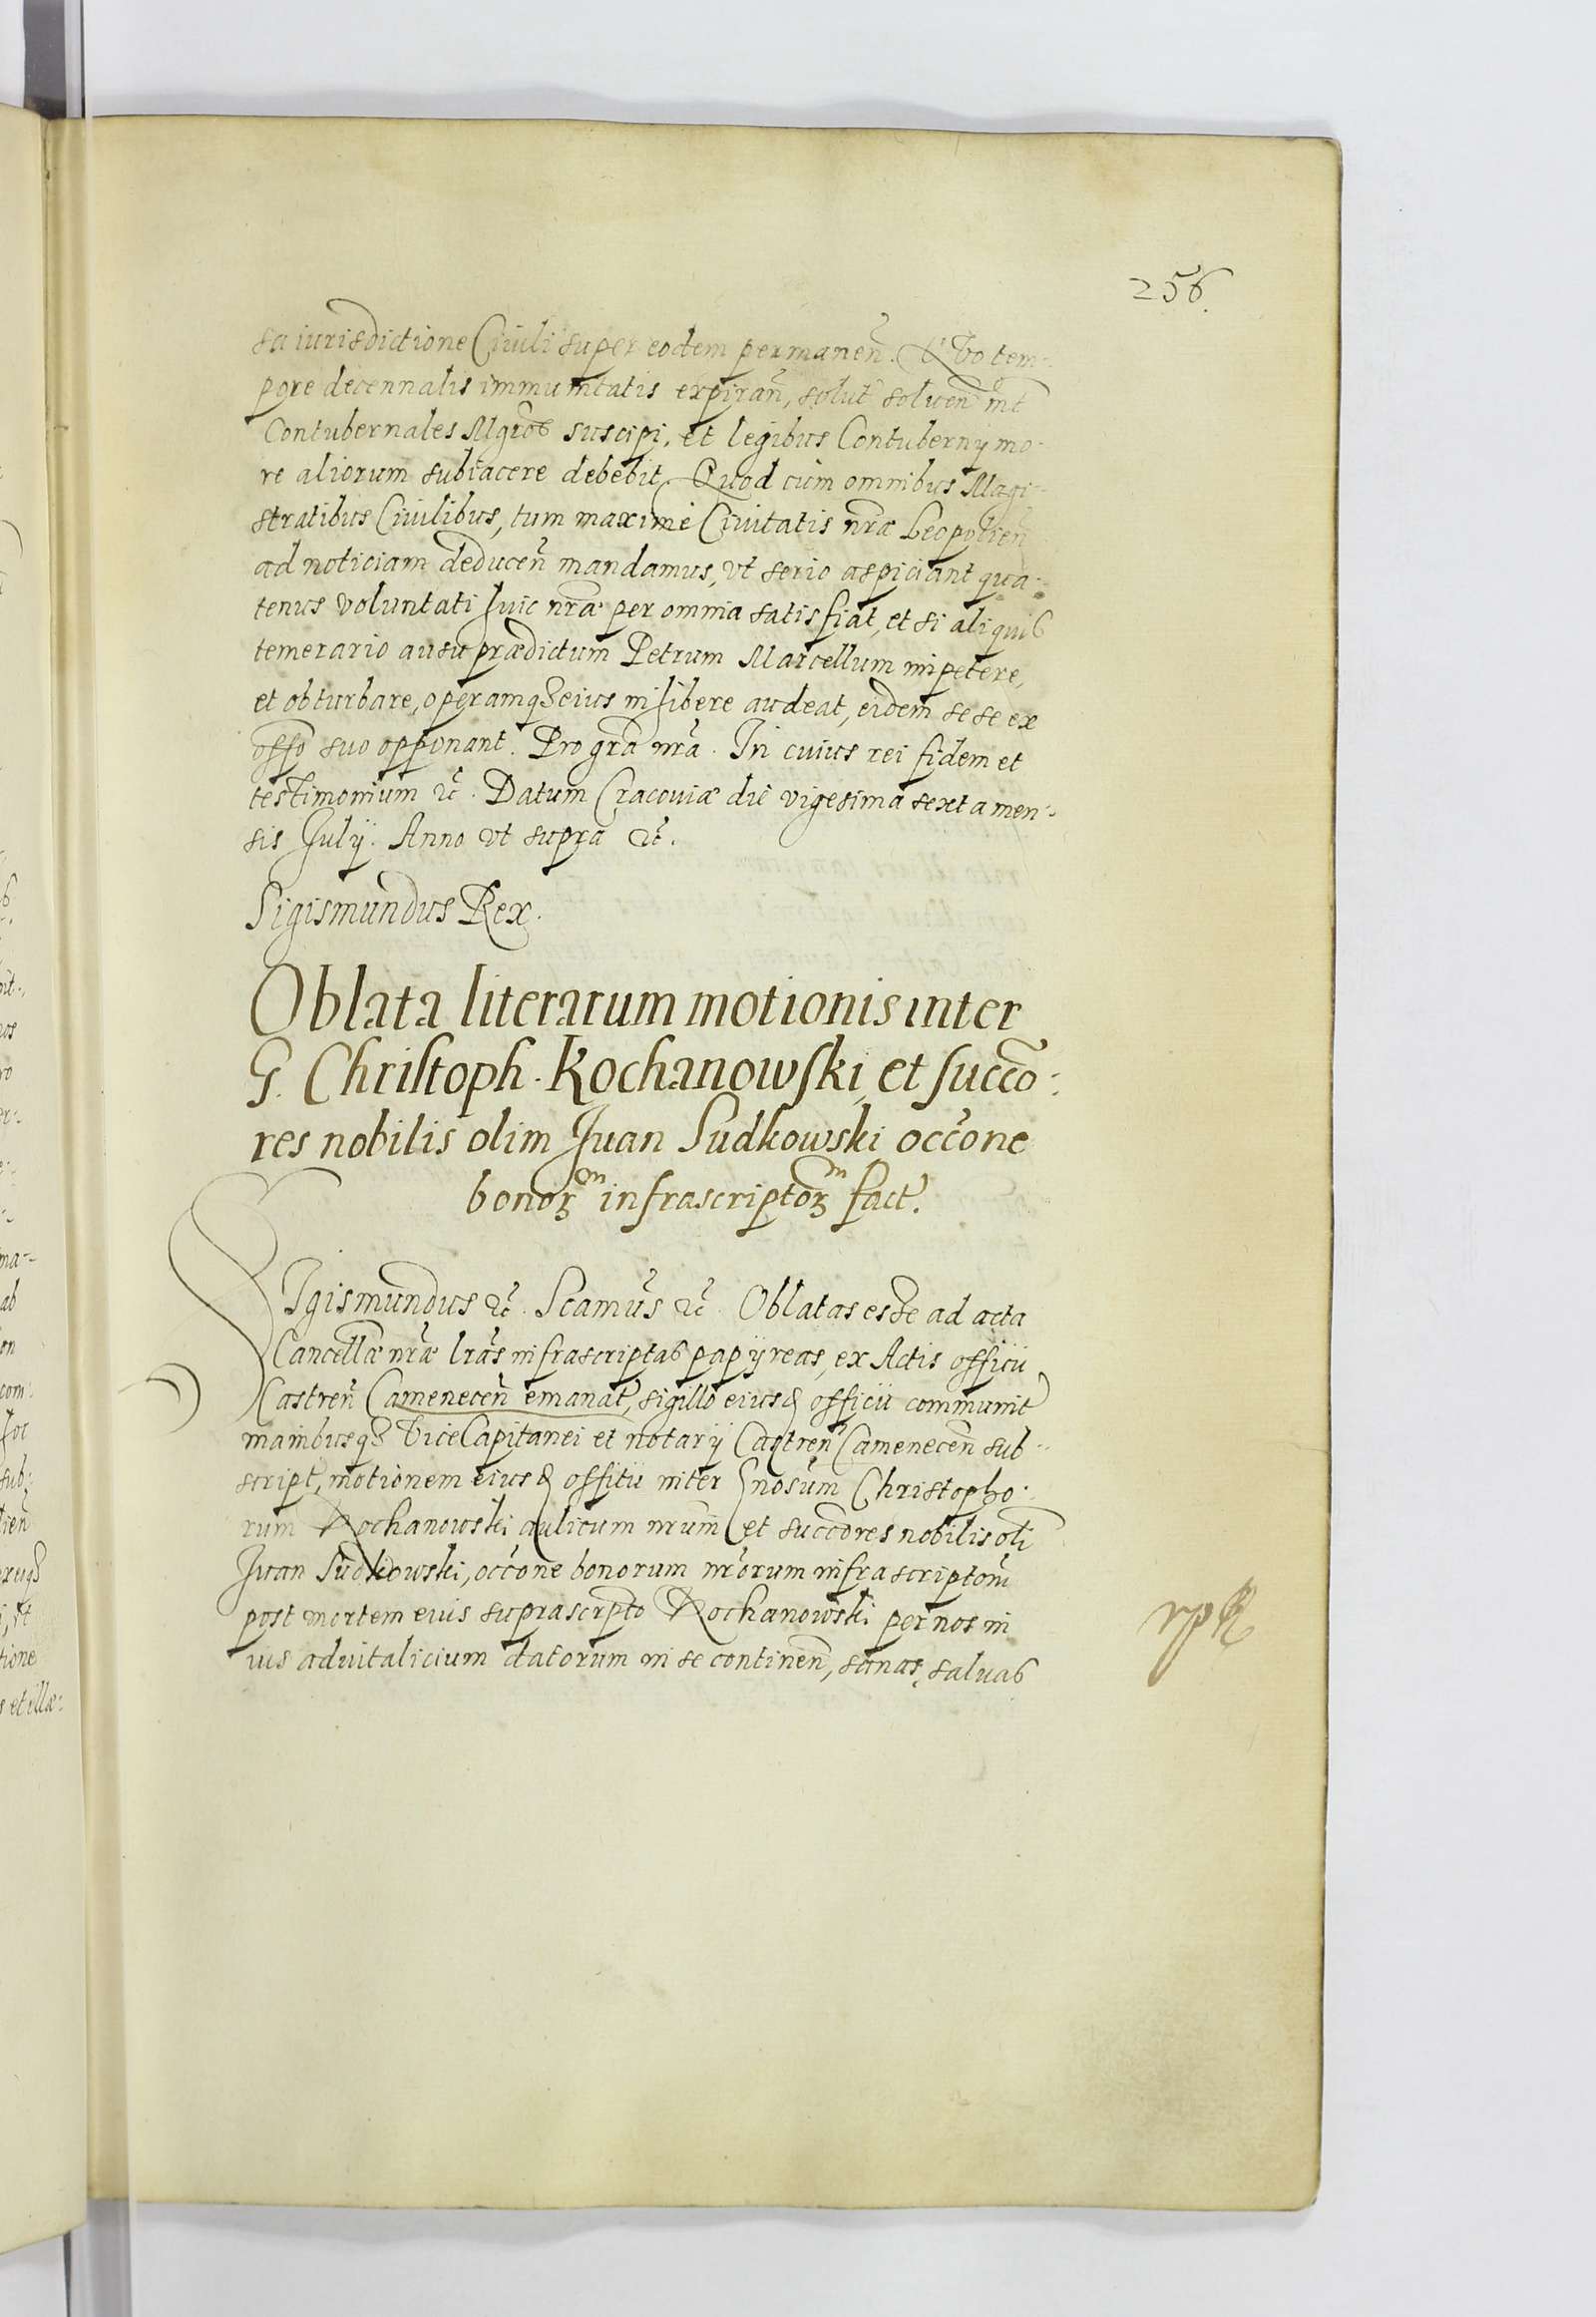 256.
sa iurisdictione Civili super eodem permanen̄. Quo tem-
pore decennalis immunitatis expiran̄, solut̄ soluen̄ int̄
Contubernales Mgros suscipi, et legibus Contubernij mo-
re aliorum subiacere debebit. Quod cum omnibus Magi-
stratibus Ciuilibus, tum maximè Ciuitatis nræ Leopolien̄
ad noticiam deducen̄ mandamus, vt serio aspiciant qua-
tenus voluntati huic nræ per omnia satisfiat, et si aliquis
temerario ausu prædictum Petrum Marcellum impetere,
et obturbare, operamq3 eius inhibere audeat, eidem sese ex
offo suo opponant. Pro gra nra. In cuius rei fidem et
testimonium &c. Datum Cracouiæ die vigesima sexta men-
sis Julij. Anno vt supra &c.
Sigismundus Rex.
Oblata literarum motionis inter
G. Christoph. Kochanowski, et succo:
res nobilis olim Iuan Sudkowski occone
bonorm infrascriptorm fact.
SIgismundus &c. Scamus &c. Oblatas esse ad acta
Cancellæ nræ lras infrascriptas papyreas, ex Actis officii
Castren̄ Camenecen̄ emanat, sigillo eiusd officii communit
manibusq3 ViceCapitanei et notarij Castren̄ Camenecen̄ sub-
script, motionem eiusd officii inter Gnosum Christopho-
rum Kochanowski aulicum nrum et succores nobilis oli
Iuan Sudkowski, occone bonorum nrorum infrascriptom
post mortem eius suprascrpto Kochanowski per nos in
ius aduitalicium datorum in se continen̄, sanas, saluas